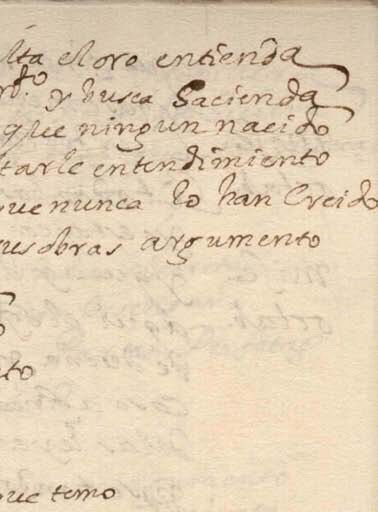 elta el oro entienda
rdto. y busca Sacienda
que ningun nacido
tarle entendimiento
ue nunca lo han Creido
us obras argumento
o
to
ue temo